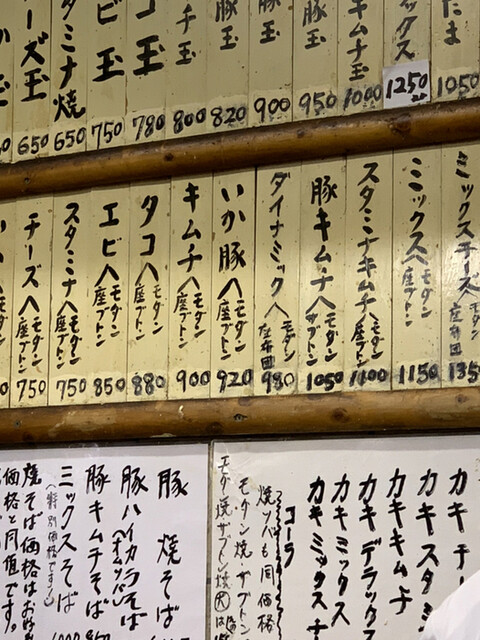 たま 1050
ックス 1250
キムチ玉 1000
豚玉 950
豚玉 900
豚玉 820
チ玉 800
コ玉 780
ビ玉 750
タミナ焼 650
ーズ玉 650
ミックスチーズへモダン座布団 135
ミックスへモダン座ブトン 1150
スタミナキムチへモダン座ブトン 1100
豚キムチへモダンザブトン 1050
ダイナミックへモダン座布団 980
いか豚へモダン座ブトン 920
キムチへモダン座ブトン 900
タコへモダン座ブトン 880
エビへモダン座ブトン 850
スタミナへモダン座ブトン 750
チーズへモダン座ブトン 750
カキチー
カキスタミ
カキキムチ
カキデラックス
カキミックス
カキミックスチ
コーラ
焼ソバも同価格
モダン焼・ザブトン
モダン焼ザブトン焼大は
豚 焼そば
豚ハイカラそば(オムソバ)
豚キムチそば
ミックスそば
(特別価格です!)
焼そば価格はお好
価格と同値です。